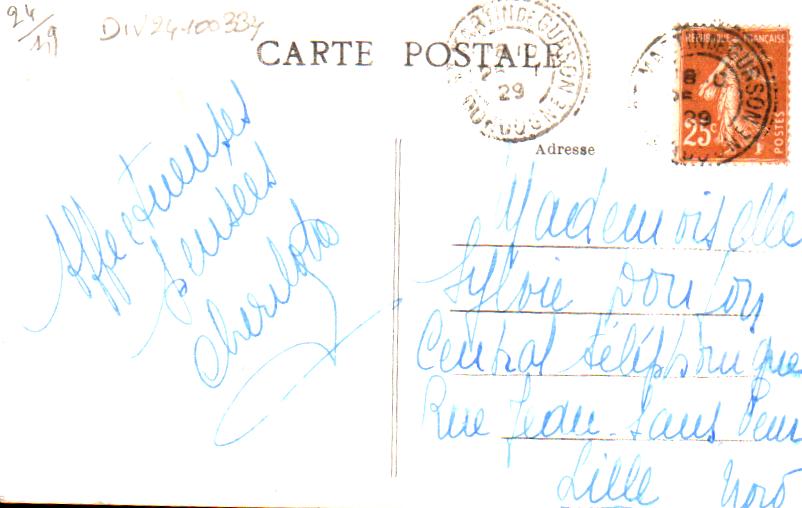 24/19
DIV24-100334
CARTE POSTALE
MARTIN DE GURSON
29
DORDOGNE
RÉPUBLIQUE FRANÇAISE
25c
POSTES
MARTIN DE GURSON
29
Adresse
Affectueuses
pensées
Mademoiselle
Sylvie
Central téléphonique
Rue Jean-Sans Peur
Lille Nord